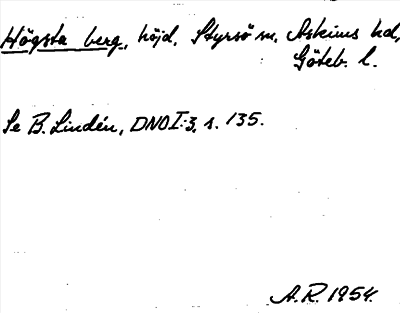 Högsta berg, höjd, Styrsö sn, Askims hd,
Göteb. l.
Se B. Lindén, DNO I:3, s. 135.
A.R. 1954.